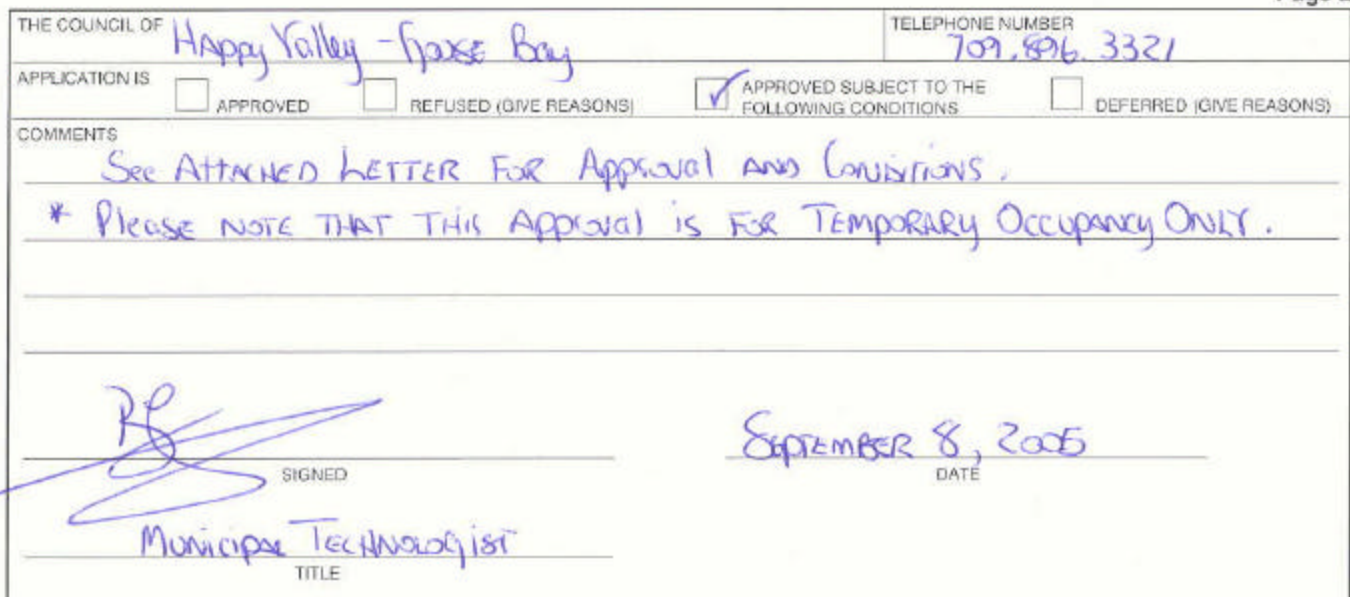 Page
THE COUNCIL OF Happy Valley - Goose Bay TELEPHONE NUMBER 709.896.3321
APPLICATION IS APPROVED REFUSED (GIVE REASONS) ✓ APPROVED SUBJECT TO THE FOLLOWING CONDITIONS DEFERRED (GIVE REASONS)
COMMENTS
See ATTACHED LETTER FOR Approval AND CONDITIONS.
* Please NOTE THAT THIS Approval is FOR TEMPORARY OCCUPANCY ONLY.
SEPTEMBER 8, 2005
SIGNED DATE
Municipal TECHNOLOGIST
TITLE